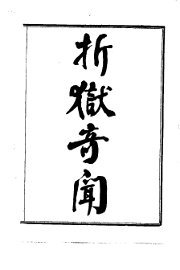 折獄奇聞